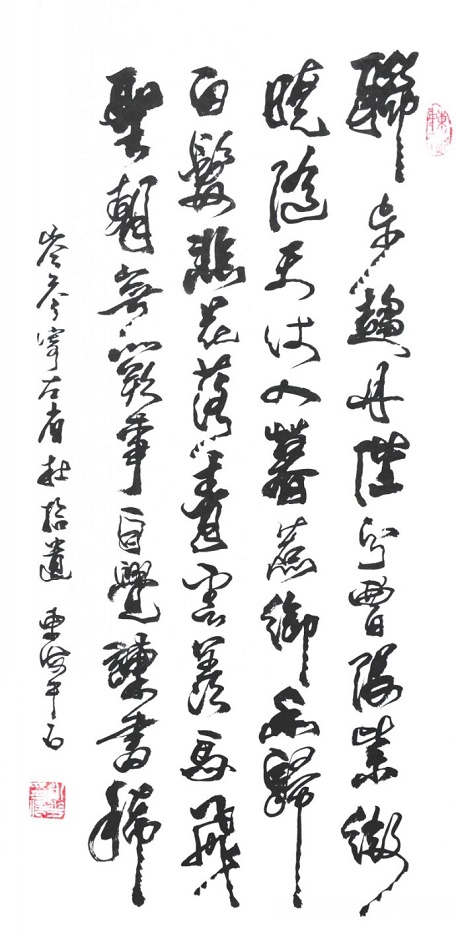 聯步趨丹陛分曹限紫微
曉隨天仗入暮惹御香歸
白髮悲花落青雲羨鳥飛
聖朝無闕事自覺諫書稀
岑參寄左省杜拾遺 東海